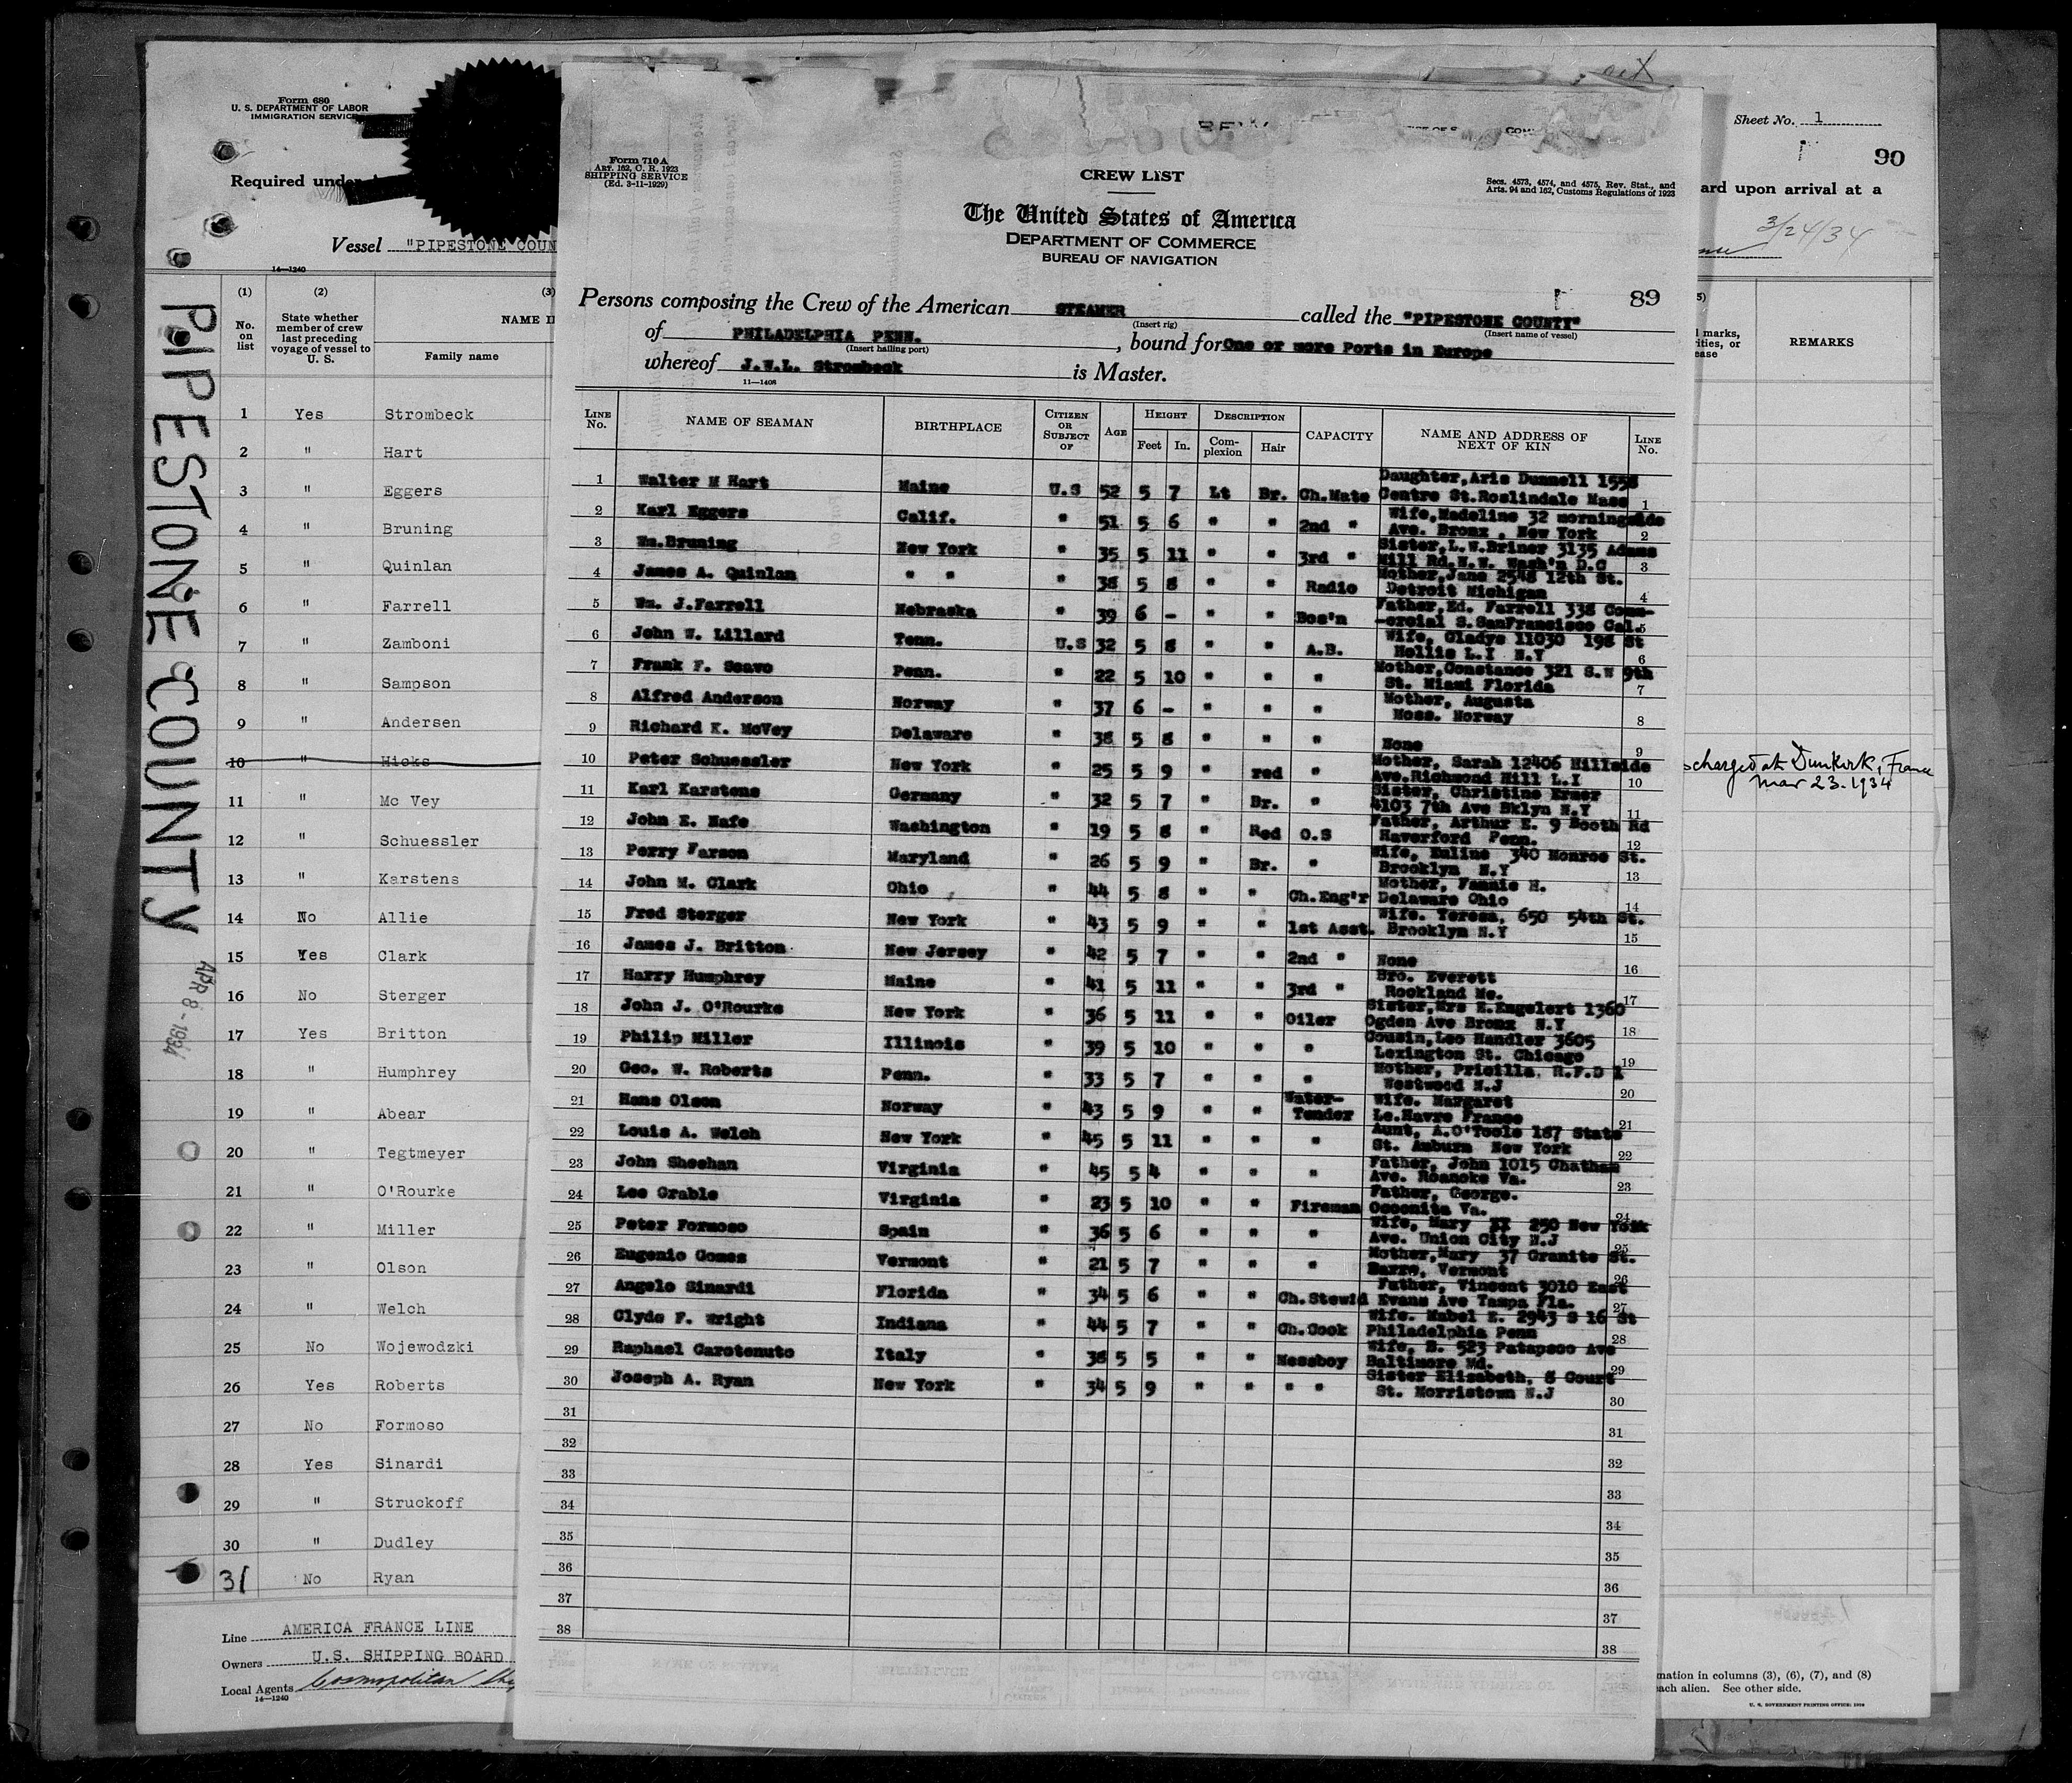 Form 680
U. S. DEPARTMENT OF LABOR
IMMIGRATION SERVICE
Required under
Vessel "PIPESTONE COUN
14—1240
(1) (2) (3)
No. on list
State whether member of crew last preceding voyage of vessel to U. S.
NAME I
Family name
1 Yes Strombeck
2 " Hart
3 " Eggers
4 " Bruning
5 " Quinlan
6 " Farrell
7 " Zamboni
8 " Sampson
9 " Andersen
10 " Hicks
11 " Mc Vey
12 " Schuessler
13 " Karstens
14 No Allie
15 Yes Clark
16 No Sterger
17 Yes Britton
18 " Humphrey
19 " Abear
20 " Tegtmeyer
21 " O'Rourke
22 " Miller
23 " Olson
24 " Welch
25 No Wojewodzki
26 Yes Roberts
27 No Formoso
28 Yes Sinardi
29 " Struckoff
30 " Dudley
31 No Ryan
Line AMERICA FRANCE LINE
Owners U.S. SHIPPING BOARD
Local Agents Cosmopolitan
14—1240
PIPESTONE COUNTY
APR 8 - 1934
Form 710 A
ART. 162, C. R. 1923
SHIPPING SERVICE
(Ed. 3-11-1929)
CREW LIST
Secs. 4573, 4574, and 4575, Rev. Stat., and
Arts. 94 and 162, Customs Regulations of 1923
The United States of America
DEPARTMENT OF COMMERCE
BUREAU OF NAVIGATION
89
Persons composing the Crew of the American STEAMER called the "PIPESTONE COUNTY"
(Insert rig) (Insert name of vessel)
of PHILADELPHIA PENN. , bound for One or more Ports in Europe
(Insert hailing port)
whereof J.W.L. Strombeck is Master.
11—1408
LINE No. NAME OF SEAMAN BIRTHPLACE CITIZEN OR SUBJECT OF AGE HEIGHT Feet In. DESCRIPTION Complexion Hair CAPACITY NAME AND ADDRESS OF NEXT OF KIN LINE No.
1 Walter M Hart Maine U.S 52 5 7 Lt Br. Ch.Mate Daughter,Aris Dunnell 1558 Centre St.Roslindale Mass 1
2 Karl Eggers Calif. " 51 5 6 " " 2nd " Wife,Madeline 32 morningside Ave. Bronx , New York 2
3 Wm.Bruning New York " 35 5 11 " " 3rd " Sister,L.W.Briner 3135 Adams Mill Rd.N.W. Wash'n D.C 3
4 James A. Quinlan " " " 38 5 8 " " Radio Mother,Jane 2548 12th St. Detroit Michigan 4
5 Wm. J.Farrell Nebraska " 39 6 - " " Bos'n Father,Ed. Farrell 338 Comm- -ercial S.SanFrancisco Cal. 5
6 John W. Lillard Tenn. U.S 32 5 8 " " A.B. Wife, Gladys 11030 198 St Hollis L.I N.Y 6
7 Frank F. Scavo Penn. " 22 5 10 " " " Mother,Constance 321 S.W 9th St. Miami Florida 7
8 Alfred Anderson Norway " 37 6 - " " " Mother, Augusta Moss. Norway 8
9 Richard K. McVey Delaware " 38 5 8 " " " None 9
10 Peter Schuessler New York " 25 5 9 " red " Mother, Sarah 12406 Hillside Ave.Richmond Hill L.I 10
11 Karl Karstens Germany " 32 5 7 " Br. " Sister, Christine Ermer 4103 7th Ave Bklyn N.Y 11
12 John E. Nafe Washington " 19 5 8 " Red O.S Father, Arthur E. 9 Booth Rd Haverford Penn. 12
13 Perry Farson Maryland " 26 5 9 " Br. " Wife, Emline 340 Monroe St. Brooklyn N.Y 13
14 John M. Clark Ohio " 44 5 8 " " Ch.Eng'r Mother, Fannie H. Delaware Ohio 14
15 Fred Sterger New York " 43 5 9 " " 1st Asst. Wife. Teresa, 650 54th St. Brooklyn N.Y 15
16 James J. Britton New Jersey " 42 5 7 " " 2nd " None 16
17 Harry Humphrey Maine " 41 5 11 " " 3rd " Bro. Everett Rockland Me. 17
18 John J. O'Rourke New York " 36 5 11 " " Oiler Sister,Mrs E.Engelert 1360 Ogden Ave Bronx N.Y 18
19 Philip Miller Illinois " 39 5 10 " " " Cousin,Leo Handler 3605 Lexington St. Chicago 19
20 Geo. W. Roberts Penn. " 33 5 7 " " " Mother, Pricilla. R.F.D 1 Westwood N.J 20
21 Hans Olson Norway " 43 5 9 " " Water- Tender Wife. Margaret Le.Havre France 21
22 Louis A. Welch New York " 45 5 11 " " " Aunt, A.O'Toole 187 State St. Auburn New York 22
23 John Sheehan Virginia " 45 5 4 " " " Father, John 1015 Chatham Ave. Roanoke Va. 23
24 Lee Grable Virginia " 23 5 10 " " Fireman Father, George. Va. 24
25 Peter Formoso Spain " 36 5 6 " " " Wife, Mary 250 New York Ave. Union City N.J 25
26 Eugenio Gomes Vermont " 21 5 7 " " " Mother,Mary 37 Granite St. Barre, Vermont 26
27 Angelo Sinardi Florida " 34 5 6 " " Ch.Stewid Father, Vincent 3010 East Evans Ave Tampa Fla. 27
28 Clyde F. Wright Indiana " 44 5 7 " " Ch.Cook Wife. Mabel E. 2943 S 16 St Philadelphia Penn 28
29 Raphael Carotenuto Italy " 38 5 5 " " Messboy Wife, B. 523 Patapsco Ave Baltimore Md. 29
30 Joseph A. Ryan New York " 34 5 9 " " " " Sister Elizabeth, 8 Court St. Morristown N.J 30
31 31
32 32
33 33
34 34
35 35
36 36
37 37
38 38
Sheet No. 1
90
ard upon arrival at a
3/24/34
5)
l marks,
ities, or
ease
REMARKS
scharged at Dunkirk, France
Mar 23. 1934
mation in columns (3), (6), (7), and (8)
ach alien. See other side.
U. S. GOVERNMENT PRINTING OFFICE: